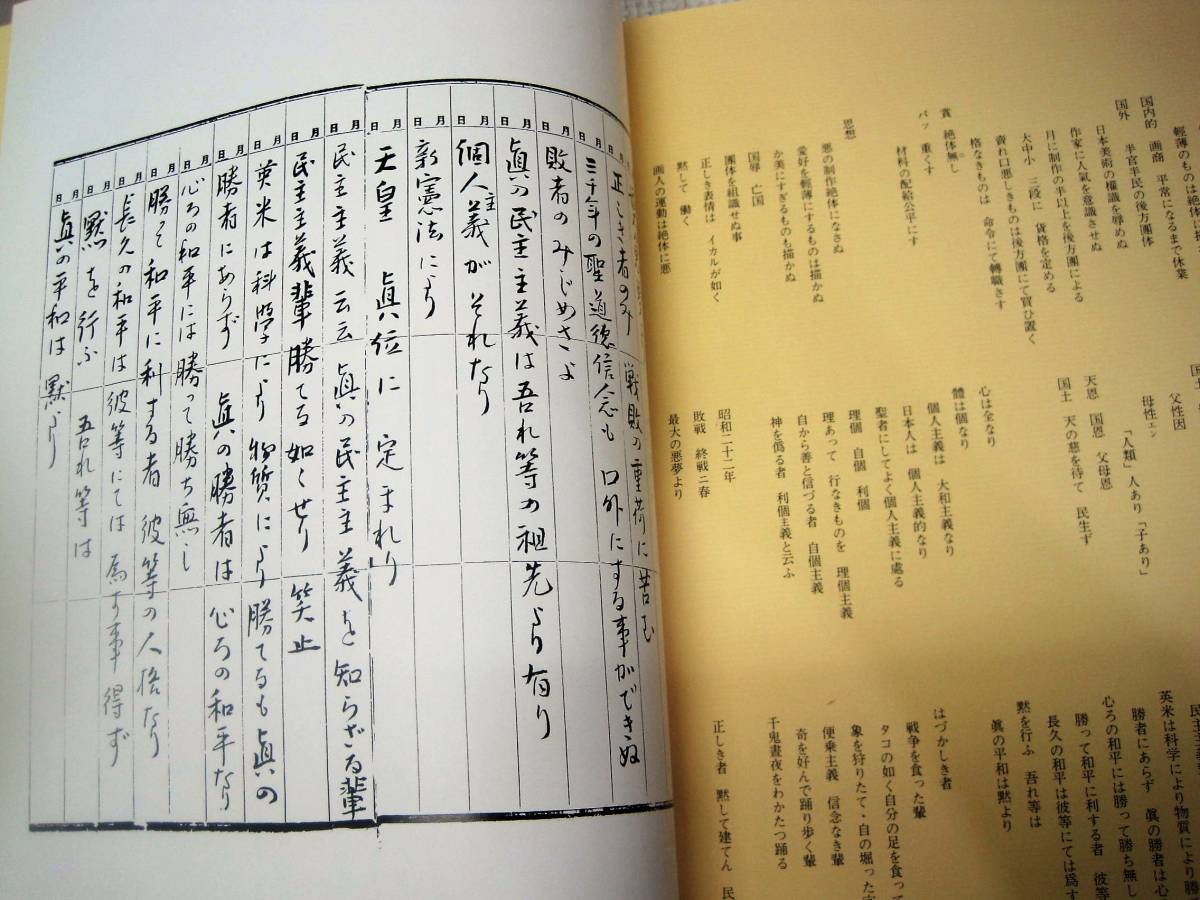 輕薄のものは絶体に描
国内的 画商 平常になるまで休業
国外 半官半民の後方團体
日本美術の權識を辱めぬ
作家に人氣を意識させぬ
月に制作の半以上を後方團による
大中小 三段に 貨格を定める
賣れ口悪しきものは後方團にて買ひ置く
格なきものは 命令にて轉職さす
賞 絶体無し
バッ 重くす
材料の配給公平にす
思想
悪の制作絶体になさぬ
愛好を輕薄にするものは描かぬ
か美にすぎるものも描かぬ
国辱 亡国
團体を組識せぬ事
正しき表情は イカルが如く
黙して 働く
画人の運動は絶体に悪
国土
父性因
母性ェン
「人類」人あり「子あり」
天恩 国恩 父母恩
国土 天の慈を待て 民生ず
心は全なり
體は個なり
個人主義は 大和主義なり
日本人は 個人主義的なり
聖者にしてよく個人主義に處る
理個 自個 利個
理あって 行なきものを 理個主義
自から善と信づる者 自個主義
神を僞る者 利個主義と云ふ
昭和二十二年
敗戦 終戦ニ春
最大の悪夢より
民主主義
英米は科学により物質により勝
勝者にあらず 眞の勝者は心
心ろの和平には勝って勝ち無し
勝って和平に利する者 彼等
長久の和平は彼等にては爲す
黙を行ふ 吾れ等は
眞の平和は黙より
はづかしき者
戦争を食った輩
タコの如く自分の足を食って
象を狩りたて、自の堀った
便乗主義 信念なき輩
奇を好んで踊り歩く輩
千鬼晝夜をわかたつ踊る
正しき者 黙して建てん 民
正しき者のみ 戦敗の重荷に苦む
三千年の聖道徳信念も 口外にする事ができぬ
敗者のみじめさよ
眞の民主主義は吾れ等の祖先より有り
個人主義がそれなり
新憲法により
天皇 眞位に定まれり
民主主義云云 眞の民主主義を知らざる輩
民主主義輩勝てる如くせり 笑止
英米は科學により物質により勝てるも眞の
勝者にあらず 眞の勝者は心ろの和平なり
心ろの和平には勝って勝ち無し
勝って和平に利する者 彼等の人格なり
長久の和平は彼等にては為す事得ず
黙を行ふ 吾れ等は
眞の平和は黙より